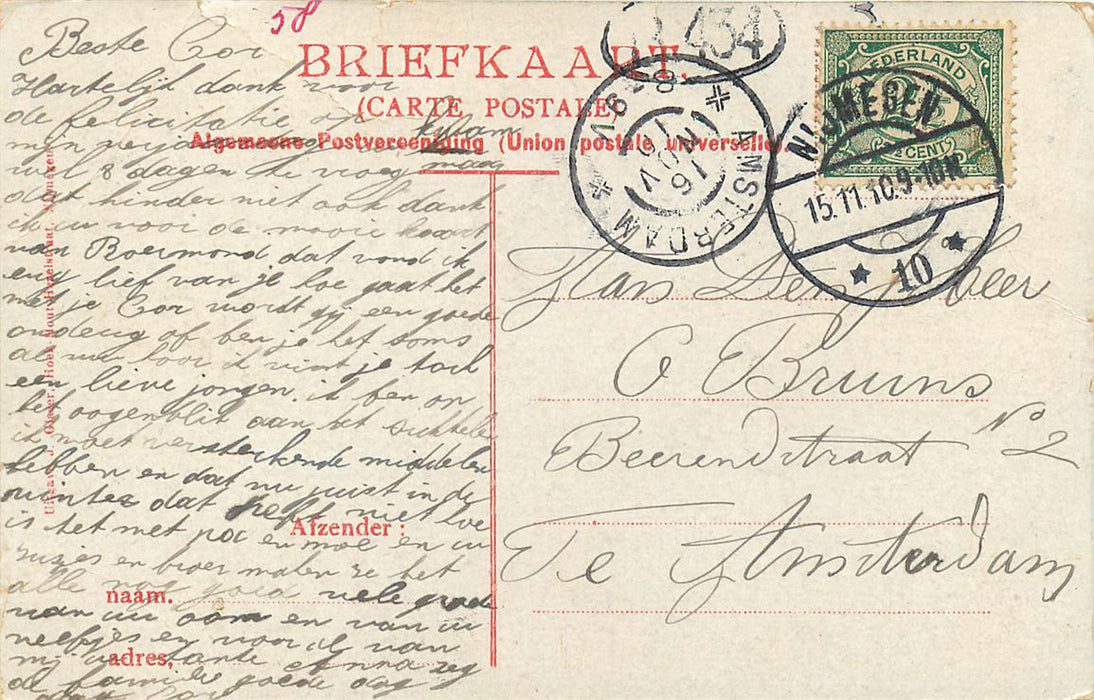 58
BRIEFKAART.
(CARTE POSTALE)
Algemeene Postvereeniging (Union postale universelle).
434
AMSTERDAM
NEDERLAND
CENTS
NIJMEGEN
15.11.10 9-10N
10
Beste Cor
Hartelijk dank voor
de felicitatie op
mijn kwam
wel 8 dagen te vroeg maar
dat hindert niet ook dank
ik u voor de mooie kaart
van Roermond dat vond ik
erg lief van je hoe gaat het
met je Cor wordt gij een goede
ondeug of ben je het soms
al nu voor ik vint je toch
een lieve jongen. ik ben op
het oogenblik aan het sukkele
ik moet versterkende middelen
hebben en dat nu juist in de
winter dat heft niet hoe
is het met pa en moe en uw
zusjes en broer maken ze het
alle nog goed vele groete
van uw oom en van uw
neefjes en voor al van
mij uw tante Anna zeg
de familie goede dag
dag Cor
Afzender:
naam.
adres,
Den Heer
C Bruins
Beerendstraat No 2
Te Amsterdam